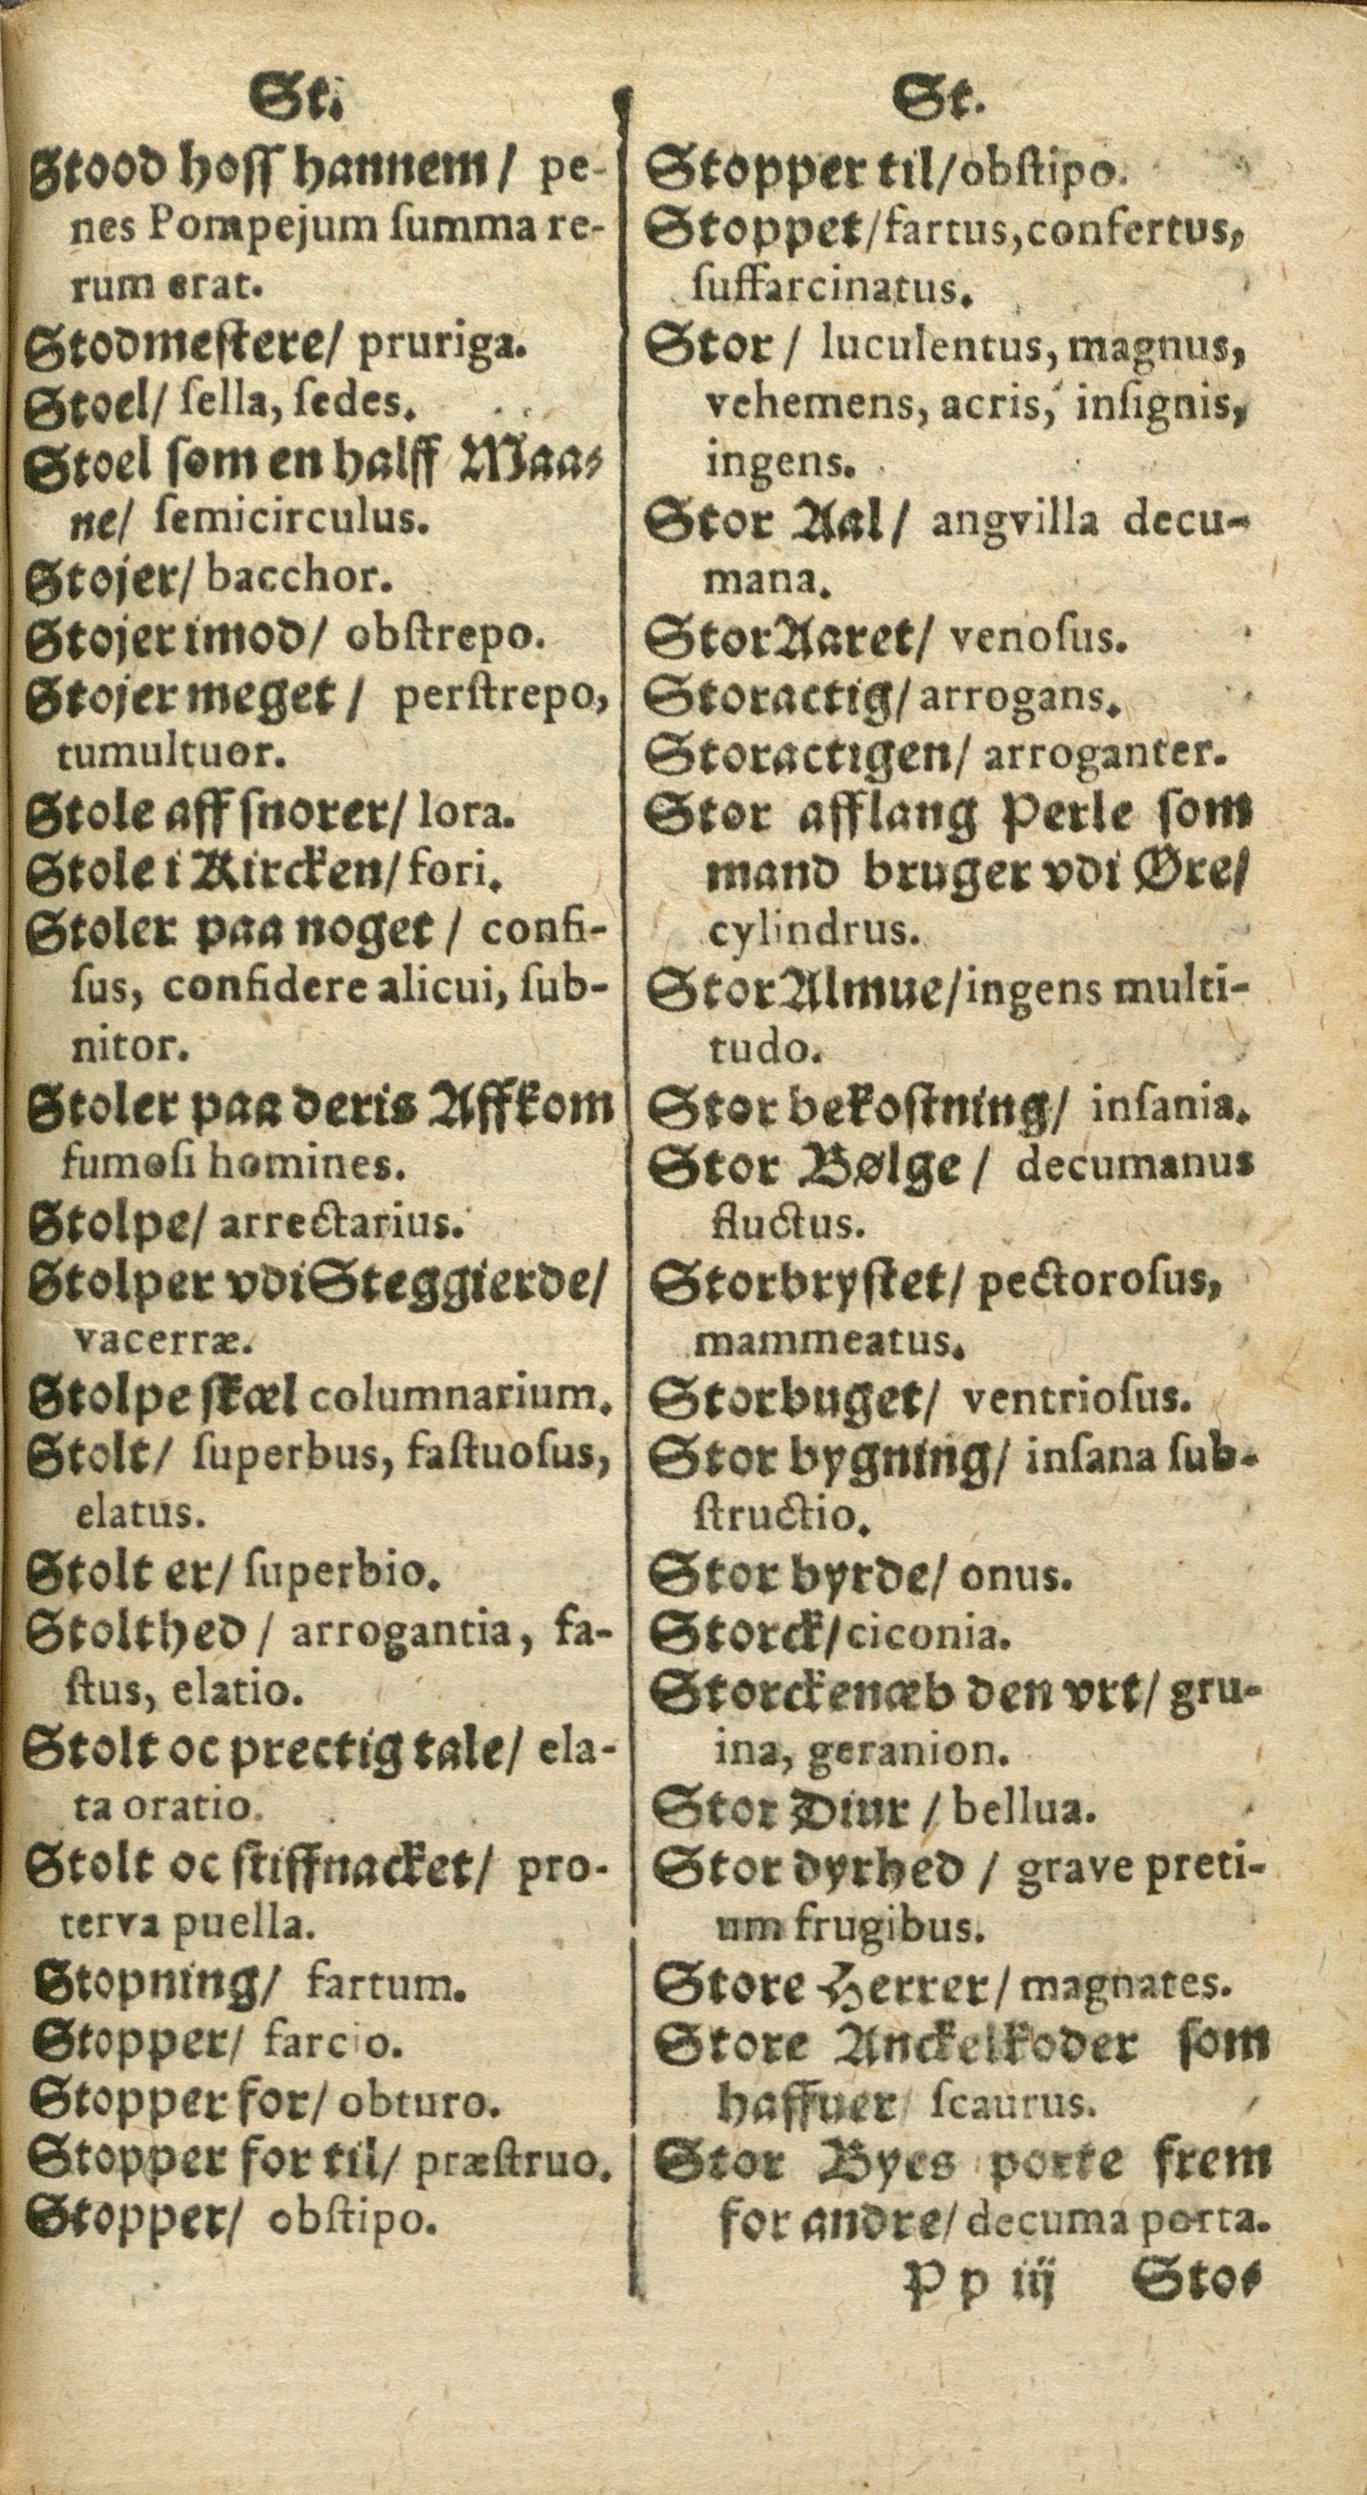 St.
Stood hoſſ hannem/ pe-
nes Pompejum ſumma re-
rum erat.
Stodmeſtere/ pruriga.
Stoel/ ſella, ſedes.
Stoel ſom en halff Maa-
ne/ ſemicirculus.
Stojer/ bacchor.
Stojer imod/ obſtrepo.
Stojer meget/ perſtrepo,
tumultuor.
Stole aff ſnorer/ lora.
Stole i Kircken/ fori.
Stoler paa noget/ confi-
ſus, confidere alicui, ſub-
nitor.
Stoler paa deris Affkom
fumoſi homines.
Stolpe/ arrectarius.
Stolper vdi Steggierde/
vacerræ.
Stolpe ſkæl columnarium.
Stolt/ ſuperbus, faſtuoſus,
elatus.
Stolt er/ ſuperbio.
Stolthed/ arrogantia, fa-
ſtus, elatio.
Stolt oc prectig tale/ ela-
ta oratio.
Stolt oc ſtiffnacket/ pro-
terva puella.
Stopning/ fartum.
Stopper/ farcio.
Stopper for/ obturo.
Stopper for til/ præſtruo.
Stopper/ obſtipo.
St.
Stopper til/ obſtipo.
Stoppet/ fartus, confertus,
ſuffarcinatus.
Stor/ luculentus, magnus,
vehemens, acris, inſignis,
ingens.
Stor Aal/ angvilla decu-
mana.
Stor Aaret/ venoſus.
Storactig/ arrogans.
Storactigen/ arroganter.
Stor afflang Perle ſom
mand bruger vdi Øre/
cylindrus.
Stor Almue/ ingens multi-
tudo.
Stor bekoſtning/ inſania.
Stor Bølge/ decumanus
fluctus.
Storbryſtet/ pectoroſus,
mammeatus.
Storbuget/ ventrioſus.
Stor bygning/ inſana ſub-
ſtructio.
Stor byrde/ onus.
Storck/ ciconia.
Storckenæb den vrt/ gru-
ina, geranion.
Stor Diur/ bellua.
Stor dyrhed/ grave preti-
um frugibus.
Store Herrer/ magnates.
Store Anckelkoder ſom
haffuer/ ſcaurus.
Stor Byes porte frem
for andre/ decuma porta.
Pp iij Stor